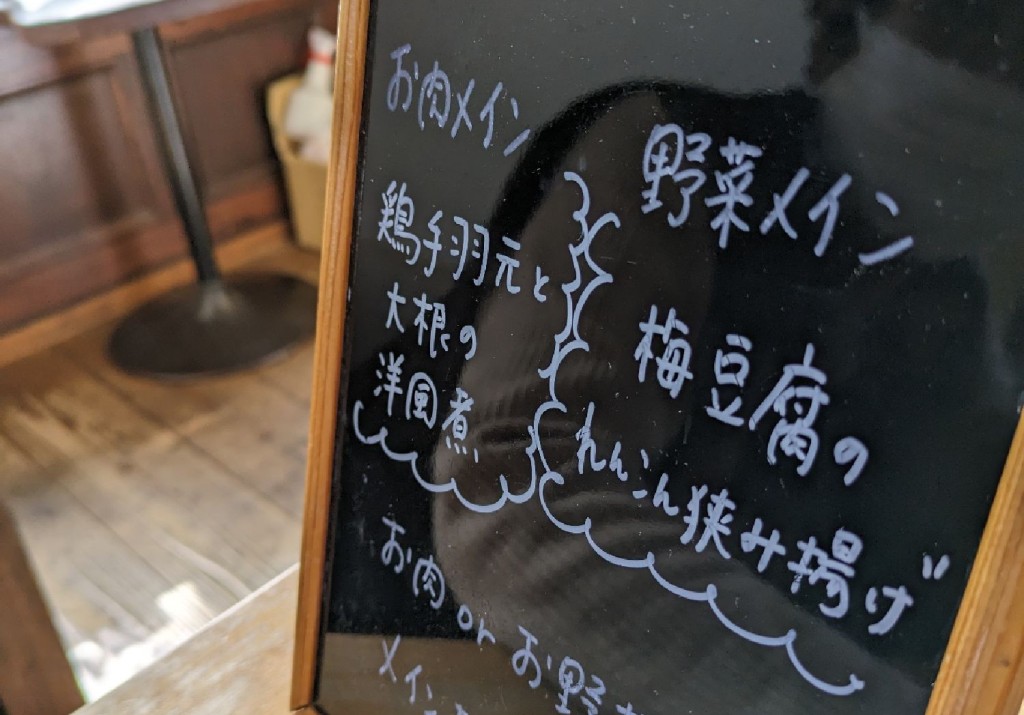 お肉メイン
鶏手羽元と
大根の
洋風煮
野菜メイン
梅豆腐の
れんこん狭み揚げ
お肉 or お野
メイン